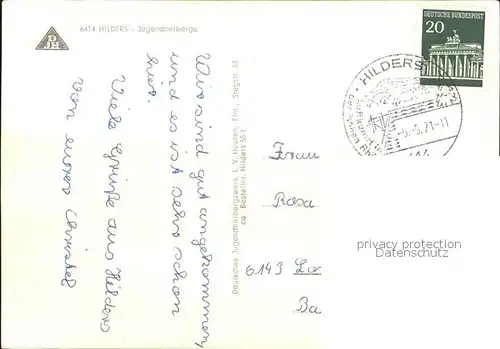 6414 HILDERS - Jugendherberge
DJH
DEUTSCHE BUNDESPOST
20
HILDERS
-6.-5.71-11
Luftkurort
Wir sind gut angekommen
und es ist sehr schön
hier.
Viele Grüße aus Hilders
von eurer Christel
Deutsches Jugendherbergswerk L.V. Hessen, Ffm., Stegstr. 33
ca Bestellnr. Hilders 55-1
Frau
Rosa
6143 Lo
Ba
privacy protection
Datenschutz